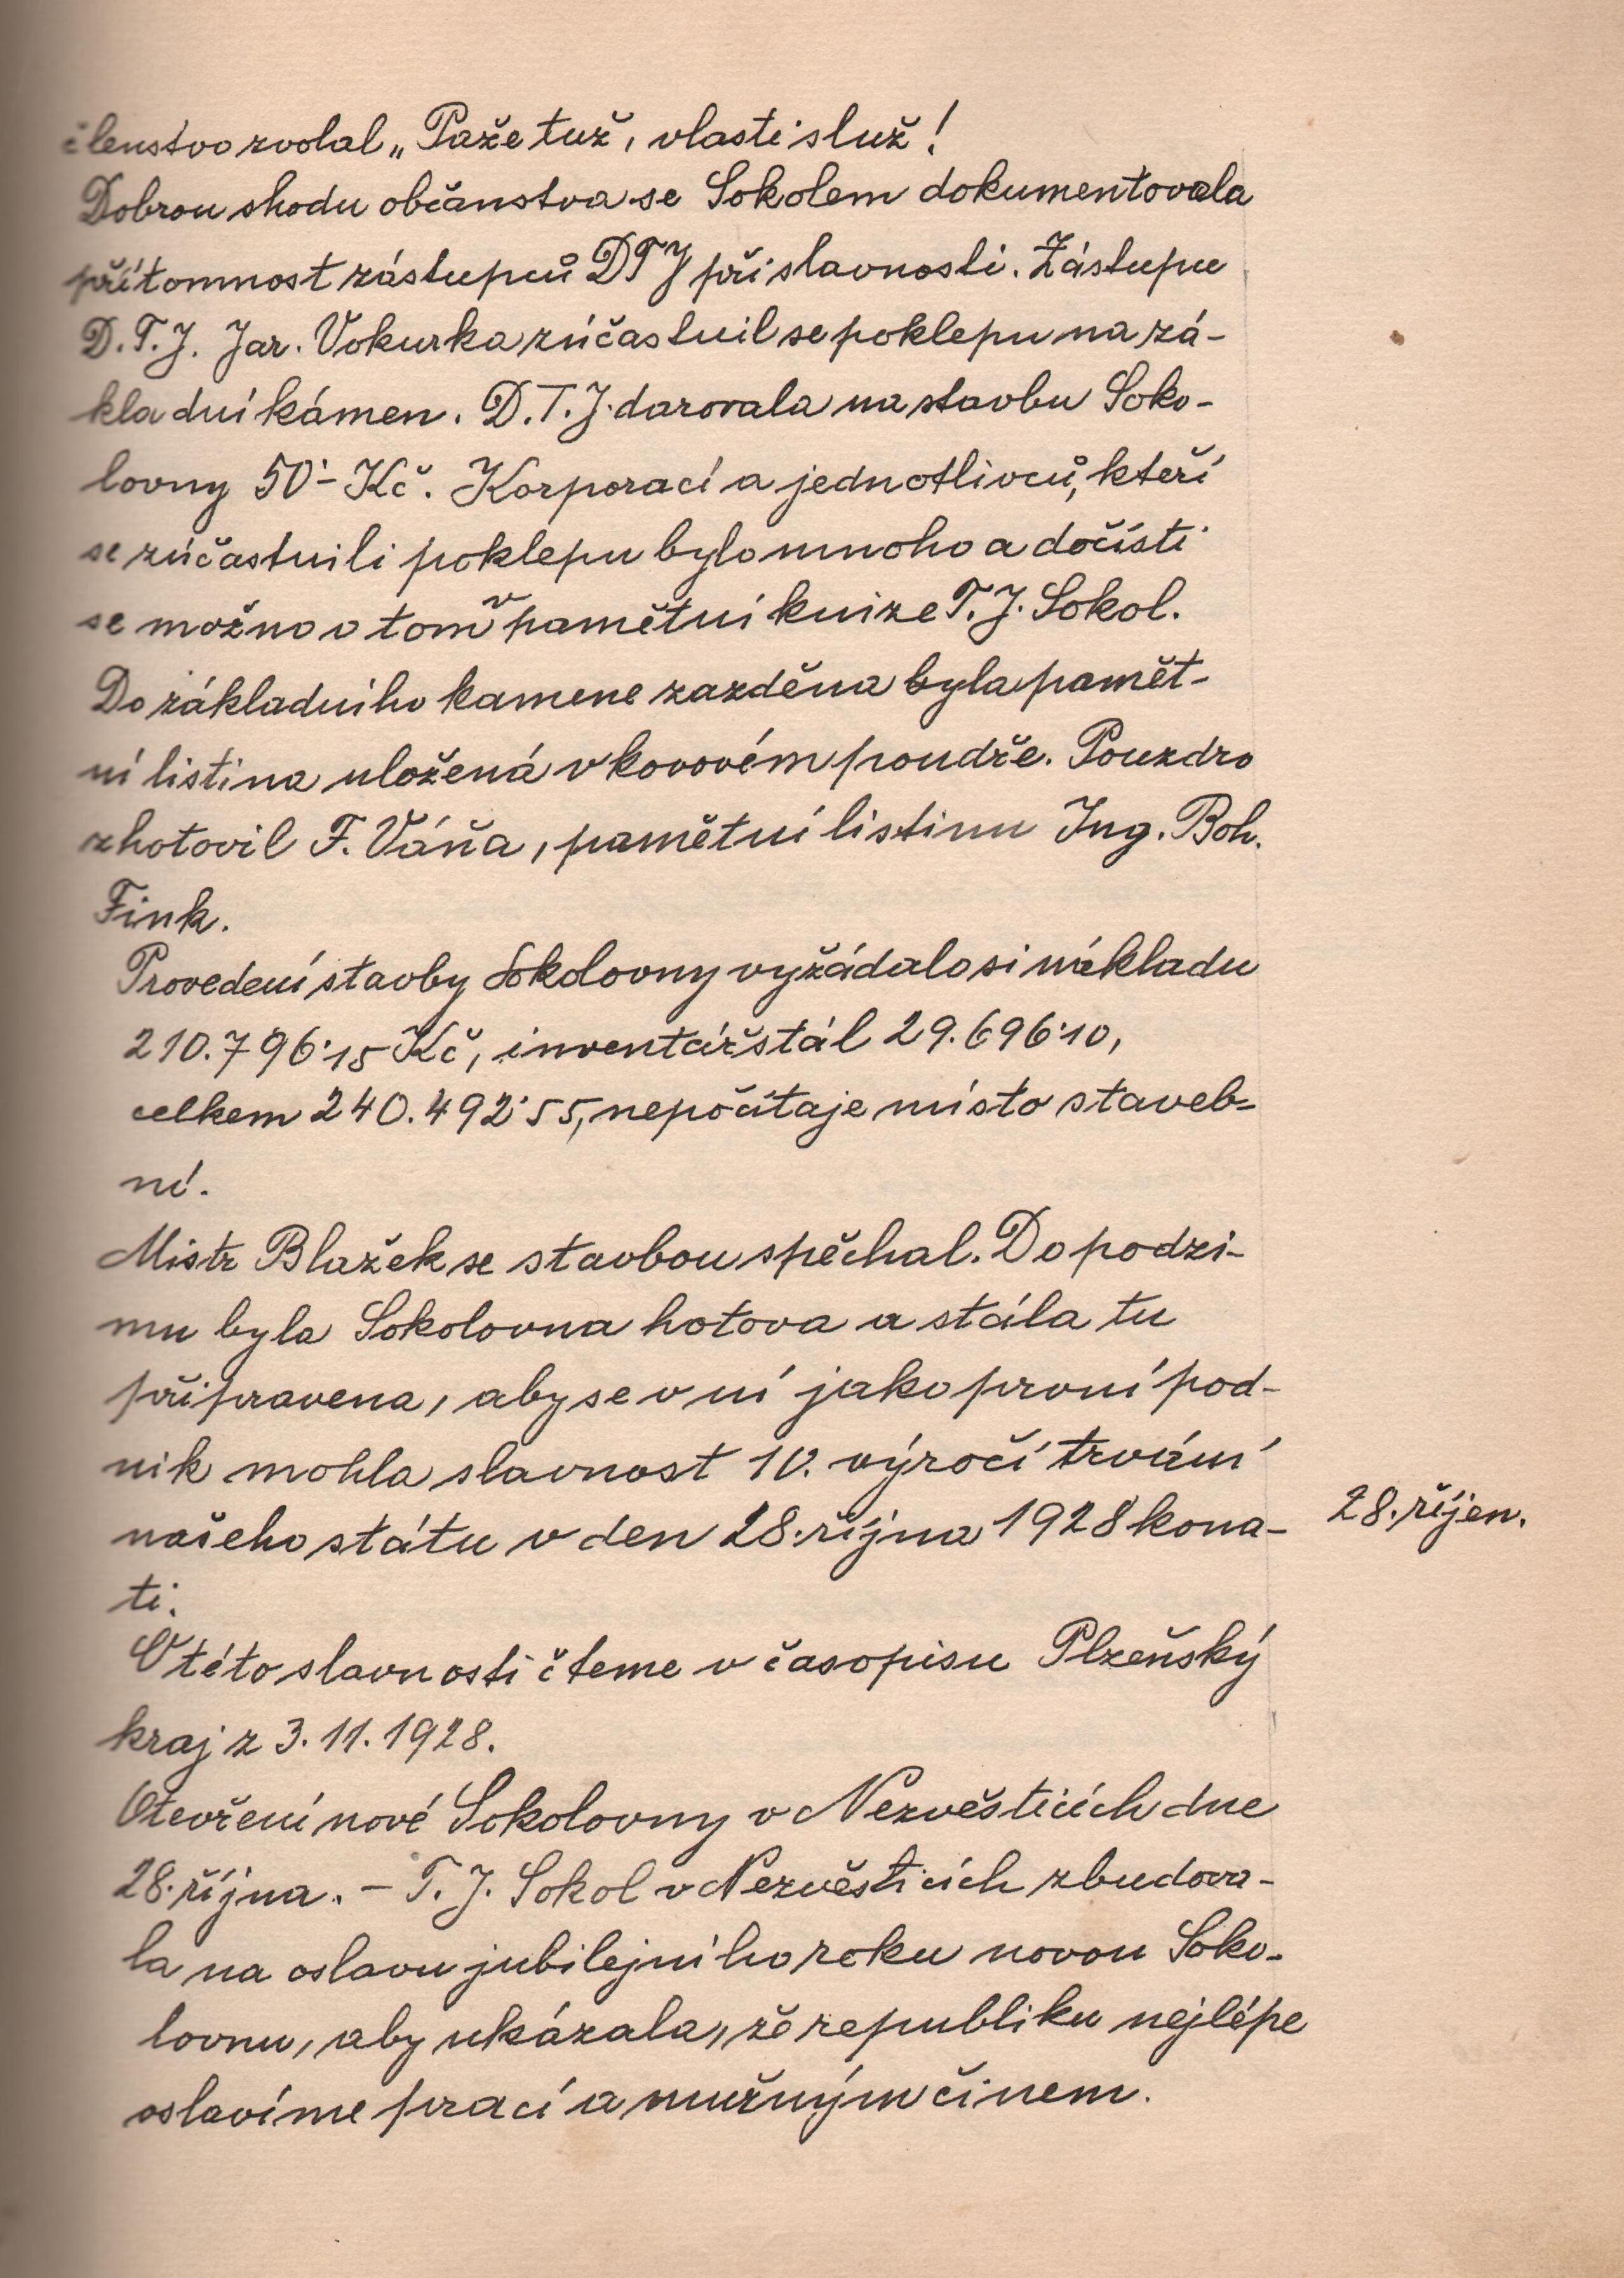 členstvo zvolal „Paže tuž, vlasti služ!
Dobrou shodu občanstva se Sokolem dokumentovala
přítomnost zástupců DTJ při slavnosti. Zástupce
D.T.J. Jar. Vokurka zúčastnil se poklepu na zá-
kladní kámen. D.T.J. darovala na stavbu Soko-
lovny 50·- Kč. Korporací a jednotlivců, kteří
se zúčastnili poklepu bylo mnoho a dočísti
se možno o tom v pamětní knize T.J. Sokol.
Do základního kamene zazděna byla pamět-
ní listina uložená v kovovém poudře. Pouzdro
zhotovil F. Váňa, pamětní listinu Ing. Boh.
Fink.
Provedení stavby Sokolovny vyžádalo si nákladu
210.796·15 Kč, inventář stál 29.696·10,
celkem 240.492·55, nepočítaje místo staveb-
ní.
Mistr Blažek se stavbou spěchal. Do podzi-
mu byla Sokolovna hotova a stála tu
připravena, aby se v ní jako první pod-
nik mohla slavnost 10. výročí trvání
našeho státu v den 28. října 1928 kona-
28. říjen.
ti.
O této slavnosti čteme v časopisu Plzeňský
kraj z 3. 11. 1928.
Otevření nové Sokolovny v Nezvěsticích dne
28. října. – T. J. Sokol v Nezvěsticích zbudova-
la na oslavu jubilejního roku novou Soko-
lovnu, aby ukázala, že republiku nejlépe
oslavíme prací a mužným činem.